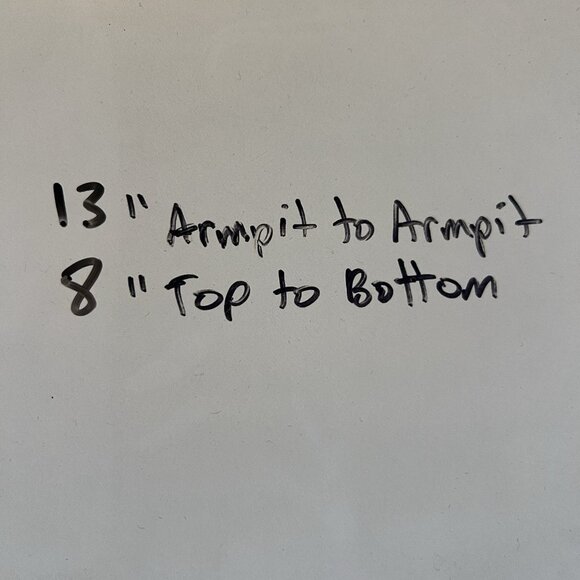 13" Armpit to Armpit
8" Top to Bottom